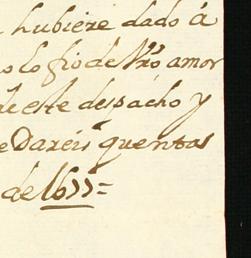 hubiere dado â
lo fio de Vro amor
de este despacho y
e Dareis quentas
de 1655=